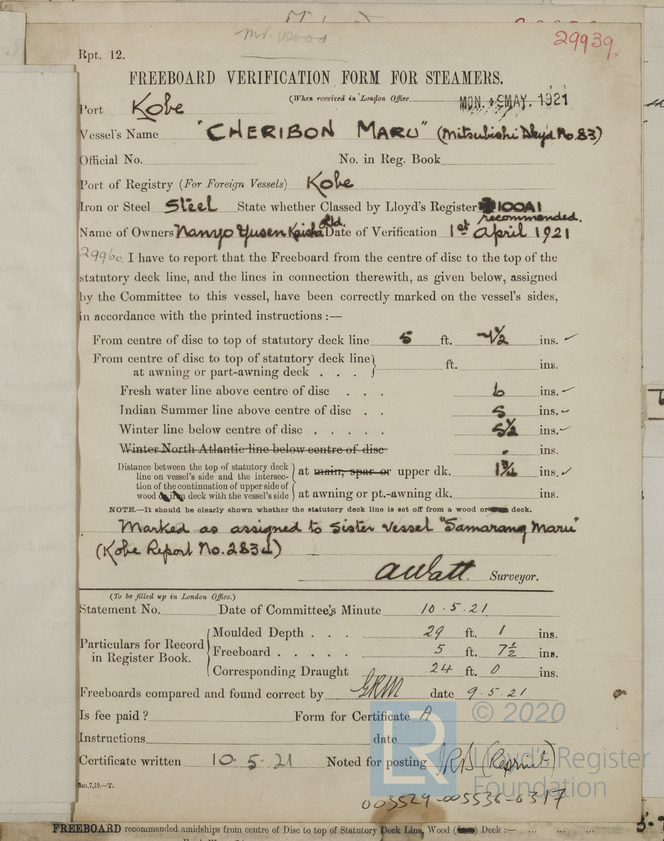 29939.
Rpt. 12.
FREEBOARD VERIFICATION FORM FOR STEAMERS.
(When received in London Office MON. 9 MAY. 1921
Port Kobe
Vessel's Name "CHERIBON MARU" (Mitsubishi Dkyd No. 83)
Official No. No. in Reg. Book
Port of Registry (For Foreign Vessels) Kobe
Iron or Steel Steel State whether Classed by Lloyd's Register 100A1
recommended.
Name of Owners Nanyo Yusen Kaisha Ltd. Date of Verification 1st April 1921
29960. I have to report that the Freeboard from the centre of disc to the top of the
statutory deck line, and the lines in connection therewith, as given below, assigned
by the Committee to this vessel, have been correctly marked on the vessel's sides,
in accordance with the printed instructions :—
From centre of disc to top of statutory deck line 5 ft. 7½ ins. ✓
From centre of disc to top of statutory deck line
at awning or part-awning deck . . . ft. ins.
Fresh water line above centre of disc . . . 6 ins. ✓
Indian Summer line above centre of disc . . 5 ins. ✓
Winter line below centre of disc . . . . . 5½ ins. ✓
Winter North Atlantic line below centre of disc ins.
Distance between the top of statutory deck
line on vessel's side and the intersec-
tion of the continuation of upper side of
wood or iron deck with the vessel's side
at main, spar or upper dk. 1¾ ins. ✓
at awning or pt.-awning dk. ins.
NOTE.—It should be clearly shown whether the statutory deck line is set off from a wood or deck.
Marked as assigned to Sister Vessel "Samarang Maru"
(Kobe Report No. 2834)
A Watt. Surveyor.
(To be filled up in London Office.)
Statement No. Date of Committee's Minute 10.5.21
Particulars for Record
in Register Book.
Moulded Depth . . . 29 ft. 1 ins.
Freeboard . . . . . 5 ft. 7½ ins.
Corresponding Draught 24 ft. 0 ins.
Freeboards compared and found correct by date 9.5.21
Is fee paid? Form for Certificate A
Instructions date
Certificate written 10.5.21 Noted for posting (Reprint)
© 2020
LR
Lloyd's Register
Foundation
003529-005536-0317
FREEBOARD recommended amidships from centre of Disc to top of Statutory Deck Line, Wood (Iron) Deck :—